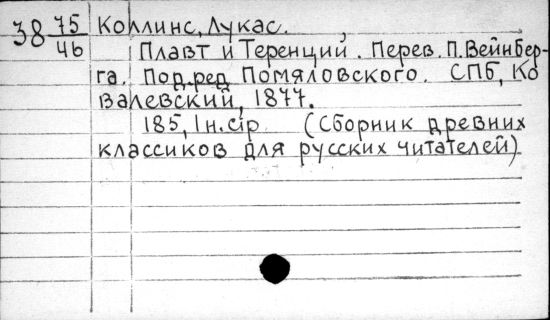 38 75/46 Коллинс, Лукас.
Плавт и Теренций. Перев. П. Вейнбер-
га. Под ред Помяловского. СПб, Ко
валевский, 1877.
185, 1 н. стр (Сборник древних
классиков для русских читателей)